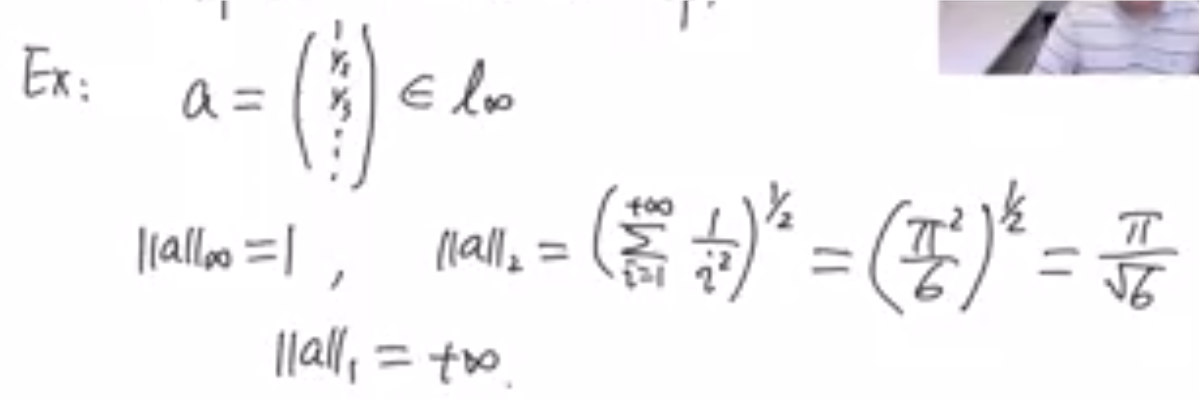 Ex: a = ( 1 1/2 1/3 ⋮ ) ∈ l∞
||a||∞ = 1 , ||a||₂ = ( ∑_{i=1}^{+∞} 1/i² )^{1/2} = ( π²/6 )^{1/2} = π/√6
||a||₁ = +∞.